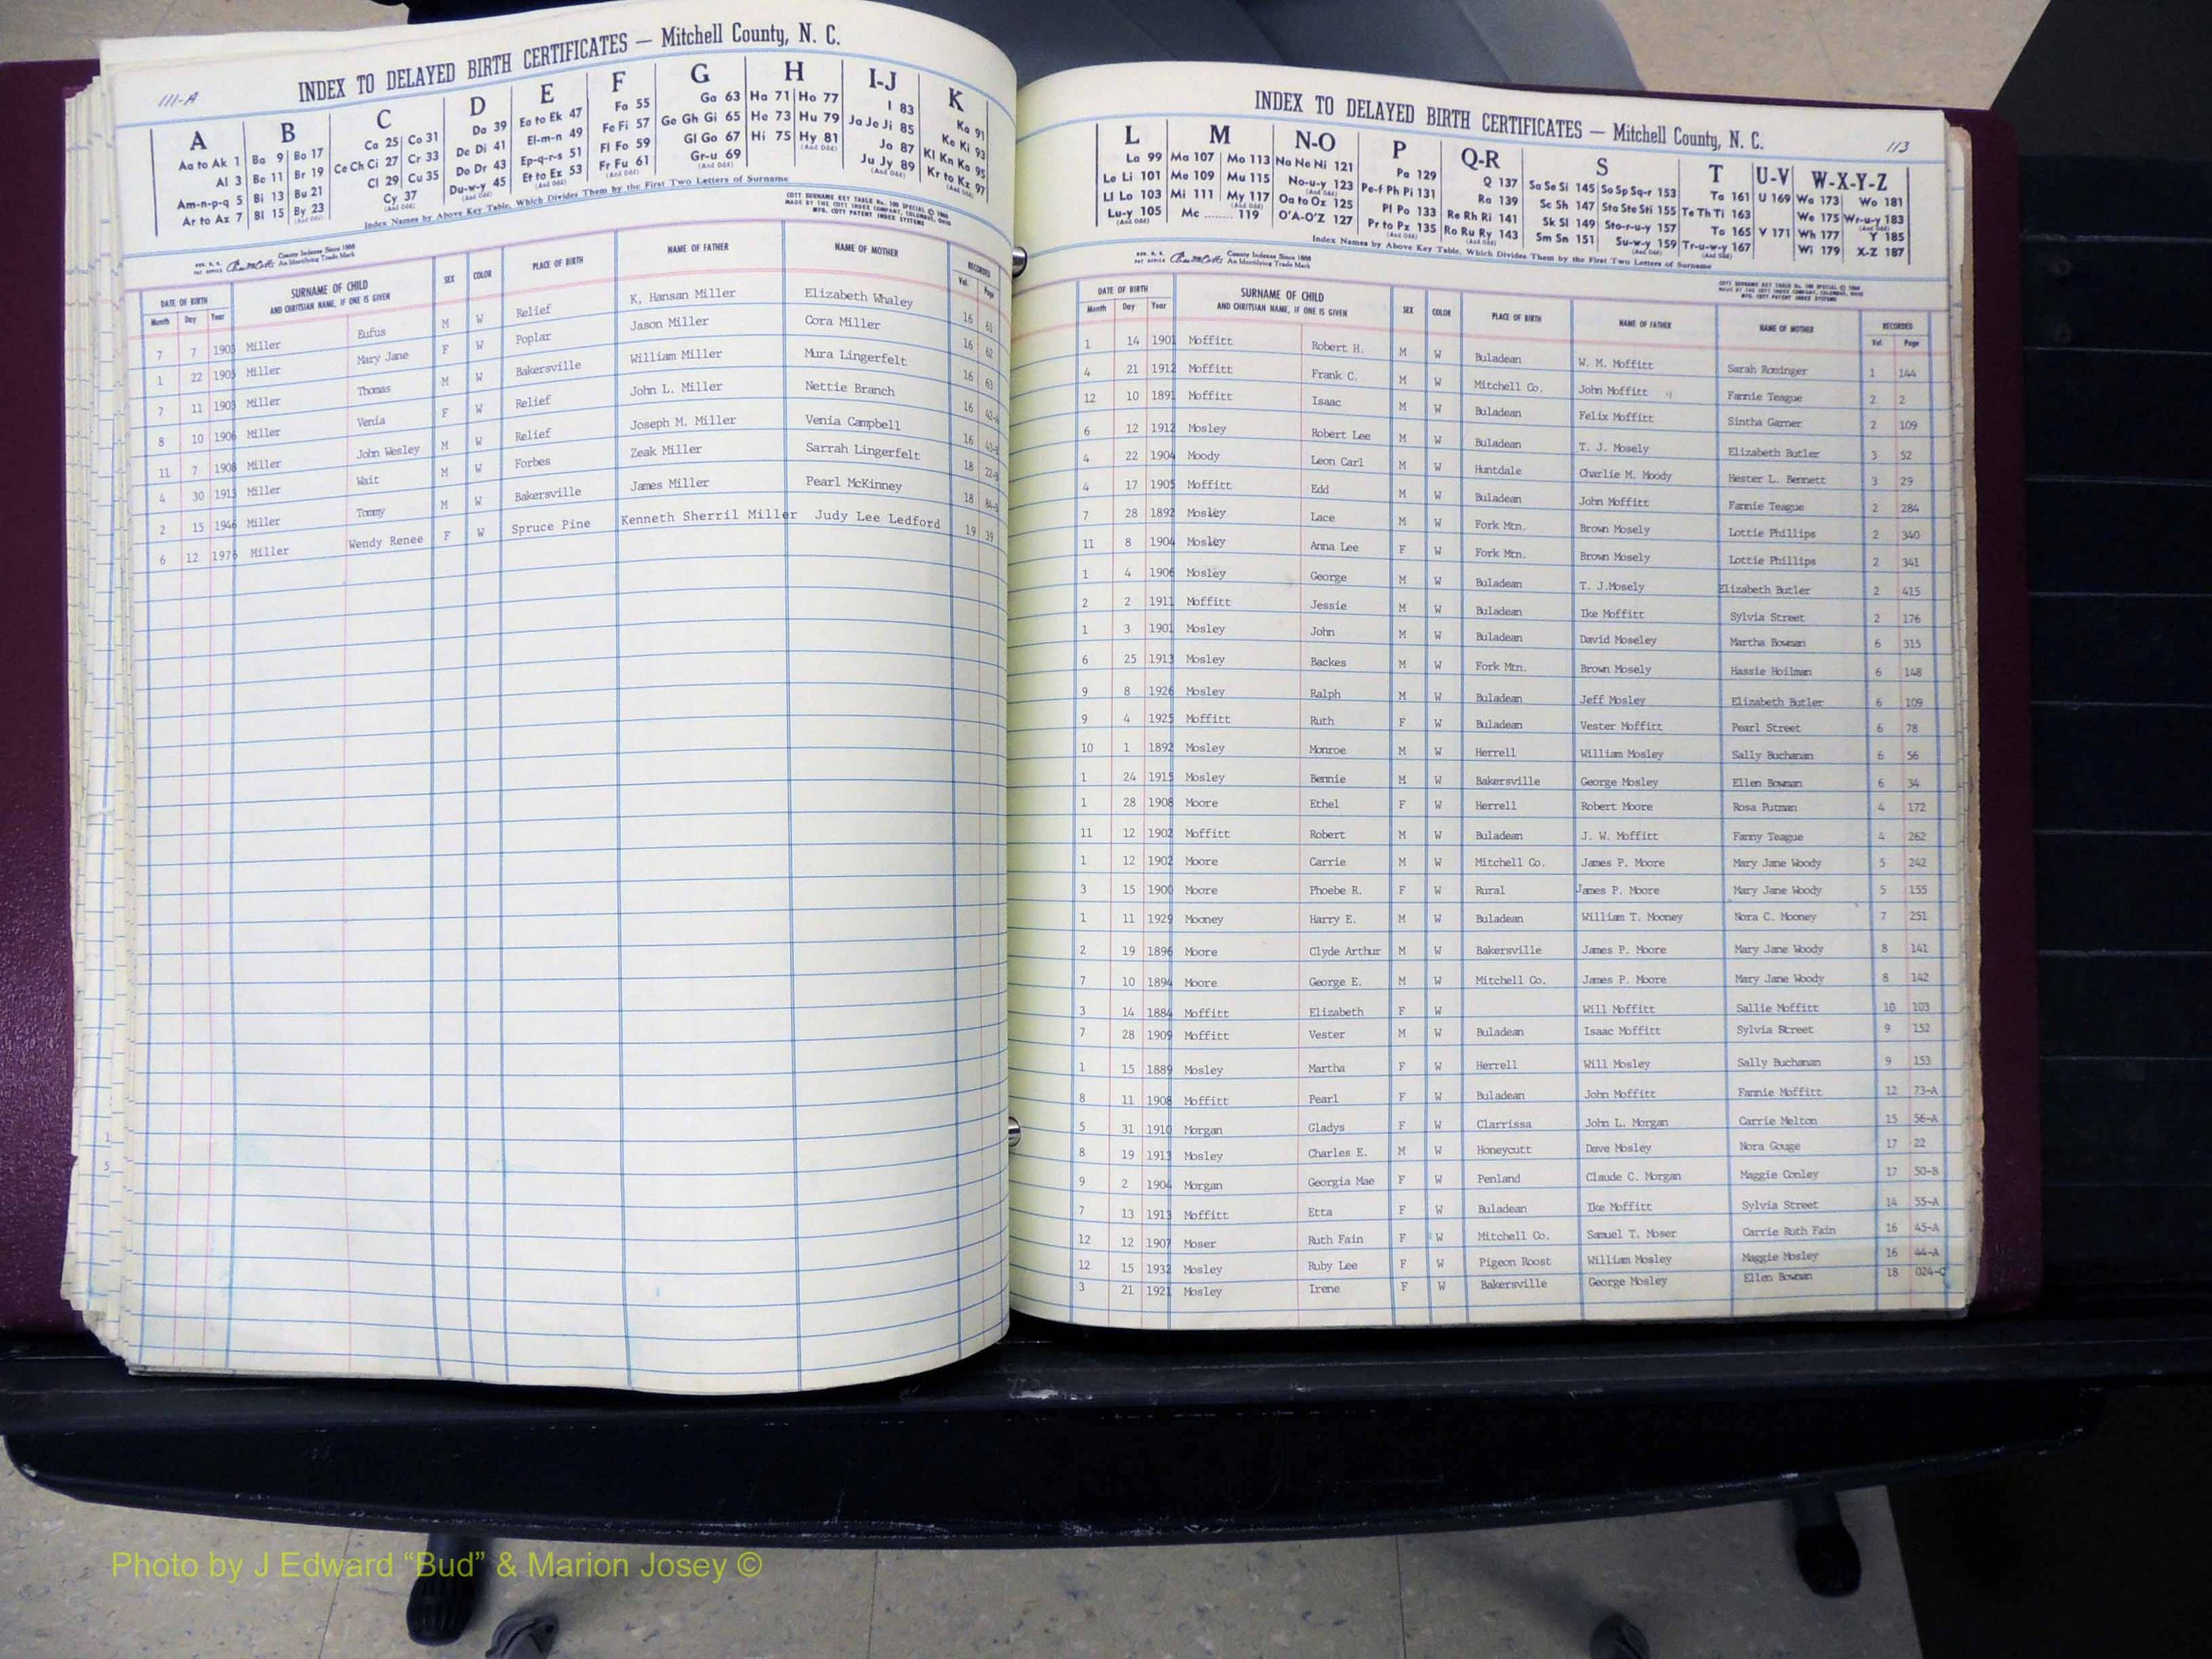 111-A
INDEX TO DELAYED BIRTH CERTIFICATES — Mitchell County, N. C.
A B C D E F G H I-J K
Aa to Ak 1 Ba 9 Bo 17 Ca 25 Co 31 Da 39 Ea to Ek 47 Fa 55 Ga 63 Ha 71 Ho 77 I 83 Ka 91
Al 3 Be 11 Br 19 Ce Ch Ci 27 Cr 33 De Di 41 El-m-n 49 Fe Fi 57 Ge Gh Gi 65 He 73 Hu 79 Ja Je Ji 85 Ke Ki 93
Am-n-p-q 5 Bi 13 Bu 21 Cl 29 Cu 35 Do Dr 43 Ep-q-r-s 51 Fl Fo 59 Gl Go 67 Hi 75 Hy 81 Jo 87 Kl Kn Ko 95
Ar to Az 7 Bl 15 By 23 Cy 37 Du-w-y 45 Et to Ez 53 Fr Fu 61 Gr-u 69 Ju Jy 89 Kr to Kz 97
(And Odd) (And Odd) (And Odd) (And Odd) (And Odd) (And Odd) (And Odd) (And Odd) (And Odd)
Index Names by Above Key Table, Which Divides Them by the First Two Letters of Surname
COTT SURNAME KEY TABLE No. 100 SPECIAL © 1960
MADE BY THE COTT INDEX COMPANY, COLUMBUS, OHIO
MFG. COTT PATENT INDEX SYSTEMS
County Indexes Since 1888
An Identifying Trade Mark
DATE OF BIRTH SURNAME OF CHILD AND CHRISTIAN NAME, IF ONE IS GIVEN SEX COLOR PLACE OF BIRTH NAME OF FATHER NAME OF MOTHER RECORDED
Month Day Year Vol. Page
7 7 1903 Miller Eufus M W Relief K, Hansan Miller Elizabeth Whaley 16 61
1 22 1905 Miller Mary Jane F W Poplar Jason Miller Cora Miller 16 62
7 11 1903 Miller Thomas M W Bakersville William Miller Mura Lingerfelt 16 63
8 10 1906 Miller Venia F W Relief John L. Miller Nettie Branch 16
11 7 1908 Miller John Wesley M W Relief Joseph M. Miller Venia Campbell 16
4 30 1913 Miller Wait M W Forbes Zeak Miller Sarrah Lingerfelt 18
2 15 1946 Miller Tommy M W Bakersville James Miller Pearl McKinney 18
6 12 1976 Miller Wendy Renee F W Spruce Pine Kenneth Sherril Miller Judy Lee Ledford 19 39
INDEX TO DELAYED BIRTH CERTIFICATES — Mitchell County, N. C.
113
L M N-O P Q-R S T U-V W-X-Y-Z
La 99 Ma 107 Mo 113 Na Ne Ni 121 Pa 129 Q 137 Sa Se Si 145 So Sp Sq-r 153 Ta 161 U 169 Wa 173 Wo 181
Le Li 101 Me 109 Mu 115 No-u-y 123 Pe-f Ph Pi 131 Ra 139 Sc Sh 147 Sta Ste Sti 155 Te Th Ti 163 We 175 Wr-u-y 183
Ll Lo 103 Mi 111 My 117 Oa to Oz 125 Pl Po 133 Re Rh Ri 141 Sk Sl 149 Sto-r-u-y 157 To 165 V 171 Wh 177 Y 185
Lu-y 105 Mc ........ 119 O'A-O'Z 127 Pr to Pz 135 Ro Ru Ry 143 Sm Sn 151 Su-w-y 159 Tr-u-w-y 167 Wi 179 X-Z 187
(And Odd) (And Odd) (And Odd) (And Odd) (And Odd) (And Odd) (And Odd) (And Odd)
Index Names by Above Key Table, Which Divides Them by the First Two Letters of Surname
County Indexes Since 1888
An Identifying Trade Mark
COTT SURNAME KEY TABLE No. 100 SPECIAL © 1960
MADE BY THE COTT INDEX COMPANY, COLUMBUS, OHIO
MFG. COTT PATENT INDEX SYSTEMS
DATE OF BIRTH SURNAME OF CHILD AND CHRISTIAN NAME, IF ONE IS GIVEN SEX COLOR PLACE OF BIRTH NAME OF FATHER NAME OF MOTHER RECORDED
Month Day Year Vol. Page
1 14 1901 Moffitt Robert H. M W Buladean W. M. Moffitt Sarah Rominger 1 144
4 21 1912 Moffitt Frank C. M W Mitchell Co. John Moffitt Fannie Teague 2 2
12 10 1891 Moffitt Isaac M W Buladean Felix Moffitt Sintha Garner 2 109
6 12 1912 Mosley Robert Lee M W Buladean T. J. Mosely Elizabeth Butler 3 52
4 22 1904 Moody Leon Carl M W Huntdale Charlie M. Moody Hester L. Bennett 3 29
4 17 1905 Moffitt Edd M W Buladean John Moffitt Fannie Teague 2 284
7 28 1892 Mosley Lace M W Fork Mtn. Brown Mosely Lottie Phillips 2 340
11 8 1904 Mosley Anna Lee F W Fork Mtn. Brown Mosely Lottie Phillips 2 341
1 4 1906 Mosley George M W Buladean T. J.Mosely Elizabeth Butler 2 415
2 2 1911 Moffitt Jessie M W Buladean Ike Moffitt Sylvia Street 2 176
1 3 1901 Mosley John M W Buladean David Moseley Martha Bowman 6 315
6 25 1913 Mosley Backes M W Fork Mtn. Brown Mosely Hassie Hoilman 6 148
9 8 1926 Mosley Ralph M W Buladean Jeff Mosley Elizabeth Butler 6 109
9 4 1925 Moffitt Ruth F W Buladean Vester Moffitt Pearl Street 6 78
10 1 1892 Mosley Monroe M W Herrell William Mosley Sally Buchanan 6 56
1 24 1915 Mosley Bennie M W Bakersville George Mosley Ellen Bowman 6 34
1 28 1908 Moore Ethel F W Herrell Robert Moore Rosa Putman 4 172
11 12 1902 Moffitt Robert M W Buladean J. W. Moffitt Fanny Teague 4 262
1 12 1902 Moore Carrie M W Mitchell Co. James P. Moore Mary Jane Woody 5 242
3 15 1900 Moore Phoebe R. F W Rural James P. Moore Mary Jane Woody 5 155
1 11 1929 Mooney Harry E. M W Buladean William T. Mooney Nora C. Mooney 7 251
2 19 1896 Moore Clyde Arthur M W Bakersville James P. Moore Mary Jane Woody 8 141
7 10 1894 Moore George E. M W Mitchell Co. James P. Moore Mary Jane Woody 8 142
3 14 1884 Moffitt Elizabeth F W Will Moffitt Sallie Moffitt 10 103
7 28 1909 Moffitt Vester M W Buladean Isaac Moffitt Sylvia Street 9 152
1 15 1889 Mosley Martha F W Herrell Will Mosley Sally Buchanan 9 153
8 11 1908 Moffitt Pearl F W Buladean John Moffitt Fannie Moffitt 12 73-A
5 31 1910 Morgan Gladys F W Clarrissa John L. Morgan Carrie Melton 15 56-A
8 19 1913 Mosley Charles E. M W Honeycutt Dave Mosley Nora Gouge 17 22
9 2 1904 Morgan Georgia Mae F W Penland Claude C. Morgan Maggie Conley 17 50-B
7 13 1913 Moffitt Etta F W Buladean Ike Moffitt Sylvia Street 14 55-A
12 12 1907 Moser Ruth Fain F W Mitchell Co. Samuel T. Moser Carrie Ruth Fain 16 45-A
12 15 1932 Mosley Ruby Lee F W Pigeon Roost William Mosley Maggie Mosley 16 44-A
3 21 1921 Mosley Irene F W Bakersville George Mosley Ellen Bowman 18 024-C
Photo by J Edward “Bud” & Marion Josey ©